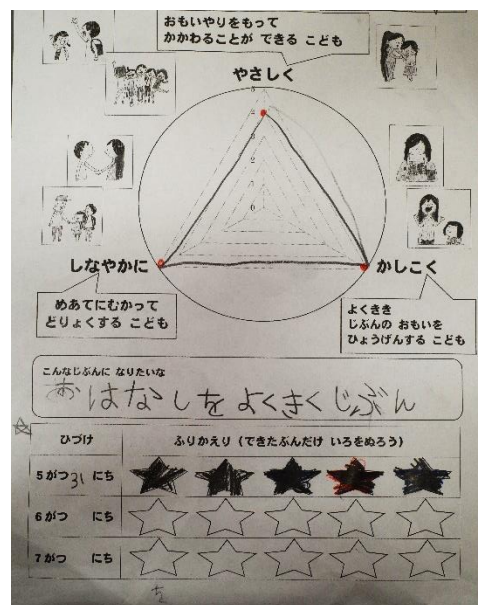 おもいやりをもって
かかわることが できる こども
やさしく
5
4
3
2
1
0
しなやかに
かしこく
めあてにむかって
どりょくする こども
よくきき
じぶんの おもいを
ひょうげんする こども
こんなじぶんに なりたいな
おはなしをよくきくじぶん
ひづけ
ふりかえり（できたぶんだけ いろをぬろう）
5がつ31にち
6がつ にち
7がつ にち
を